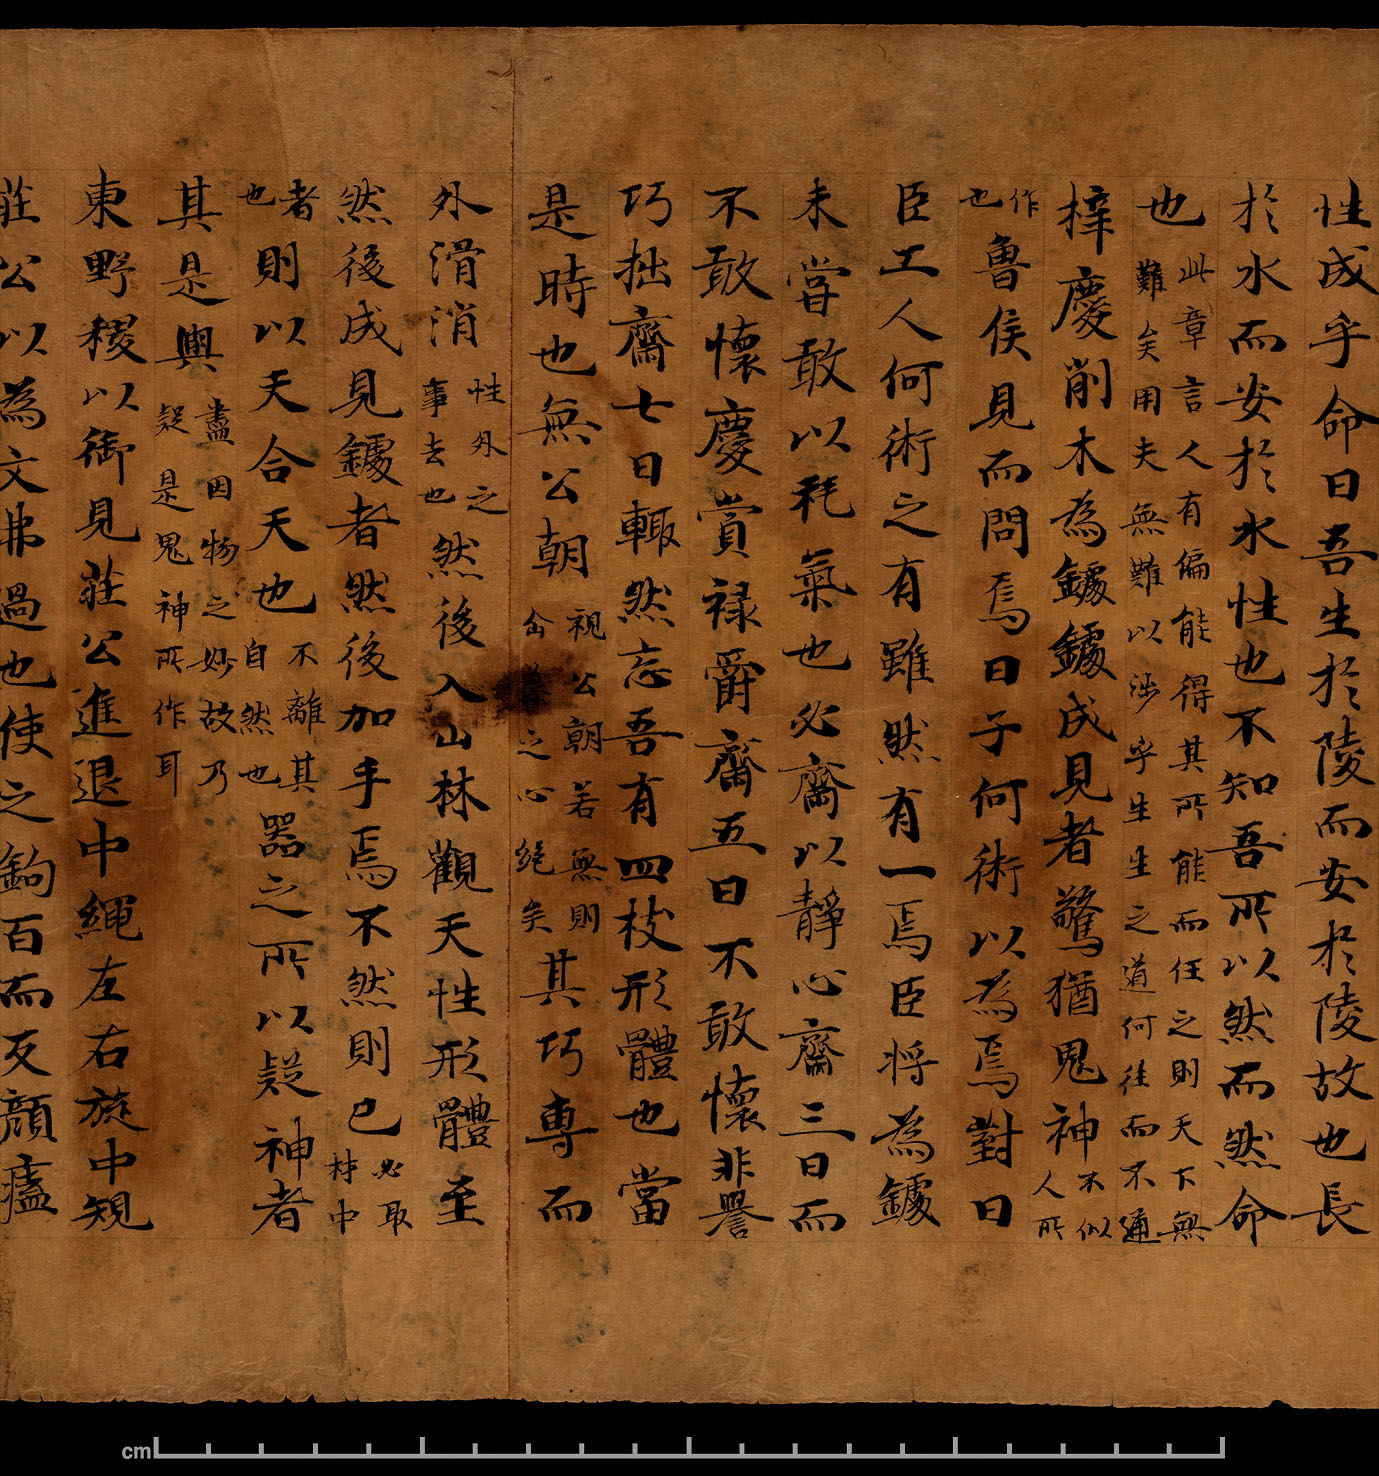 性成乎命曰吾生於陵而安於陵故也長
於水而安於水性也不知吾所以然而然命
也此章言人有偏能得其所能而任之則天下無難矣用夫無難以涉乎生生之道何往而不通
梓慶削木為鐻鐻成見者驚猶鬼神不似人所
作也魯侯見而問焉曰子何術以為焉對曰
臣工人何術之有雖然有一焉臣将為鐻
未嘗敢以耗氣也必齋以靜心齋三日而
不敢懷慶賞禄爵齋五日不敢懷非譽
巧拙齋七日輒然忘吾有四枝形體也當
是時也無公朝視公朝若無則企慕之心絕矣其巧專而
外滑消性外之事去也然後入山林觀天性形體至
然後成見鐻者然後加手焉不然則已必取材中
者也則以天合天也不離其自然也器之所以疑神者
其是與盡因物之妙故乃疑是鬼神所作耳
東野稷以御見莊公進退中繩左右旋中規
莊公以為文弗過也使之鉤百而反顏